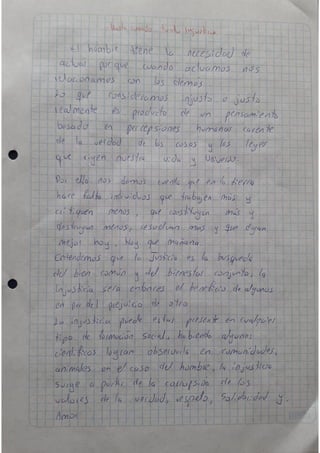 Hasta cuando tanta injusticia
El hombre tiene la necesidad de
actuar porque cuando actuamos nos
relacionamos con los demas
Lo que consideramos injusto o justo
realmente es producto de un pensamiento
basado en percepciones humanas carente
de la verdad de las cosas y las leyes
que rigen nuestra vida y universo.
Por ello nos damos cuenta que en la tierra
hace falta individuos que trabajen mas y
critiquen menos, que construyan mas y
destruyan menos, resuelvan mas y que digan
mejor hoy, hoy que mañana.
Entendemos que la justicia es la busqueda
del bien comun y del bienestar conjunto, la
Injusticia sera entonces el beneficio de algunos
en pu del prejuicio de otro
La injusticia puede estar presente en cualquier
tipo de formación social, habiendo algunos
cientificos logran observarla en comunidades,
animales en el caso del hombre, la injusticia
surge a partir de la corrupsion de los
valores de la verdad, respeto, Solidaridad y.
Amor